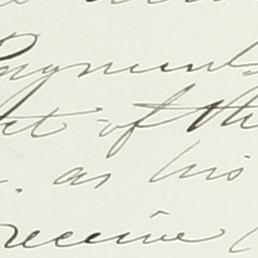 Payment
et = of the
. as his
receive